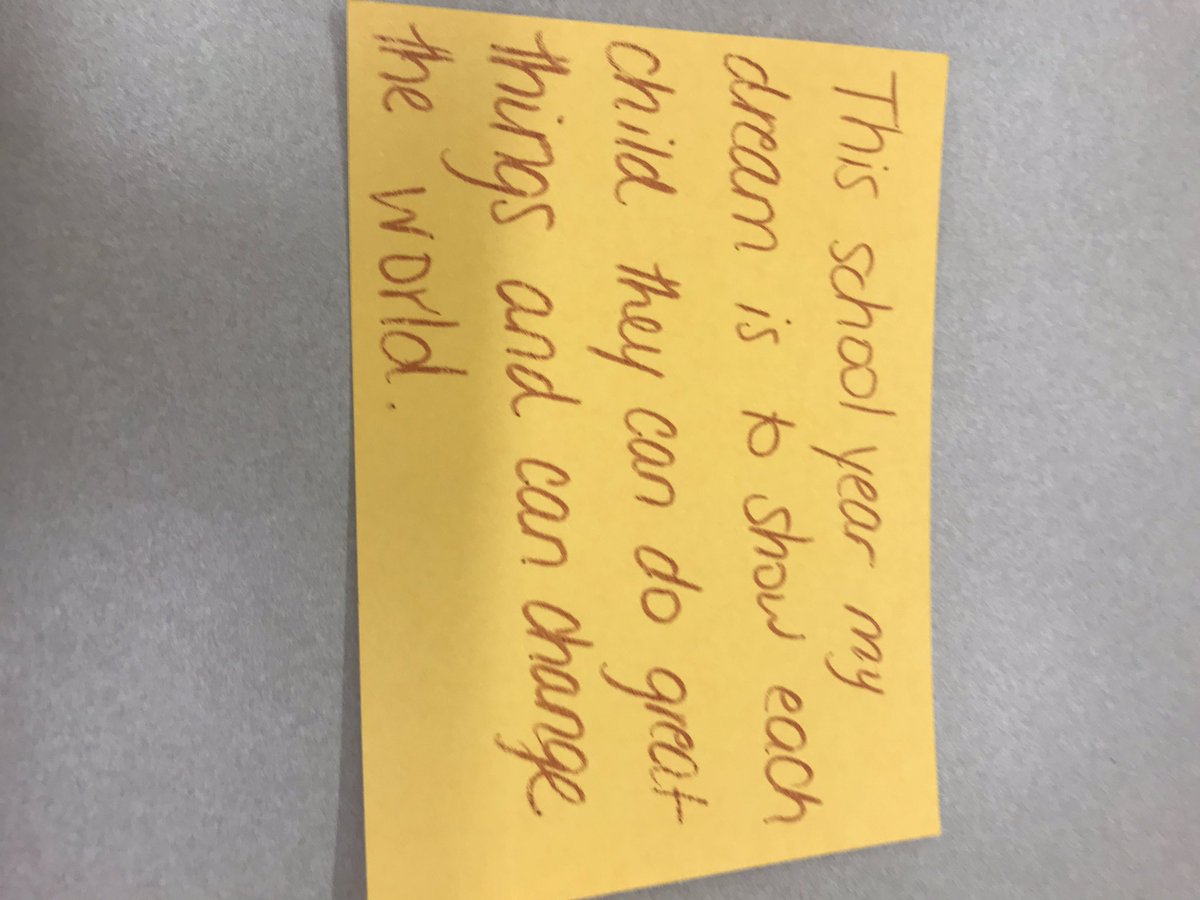 This school year my
dream is to show each
child they can do great
things and can change
the world.